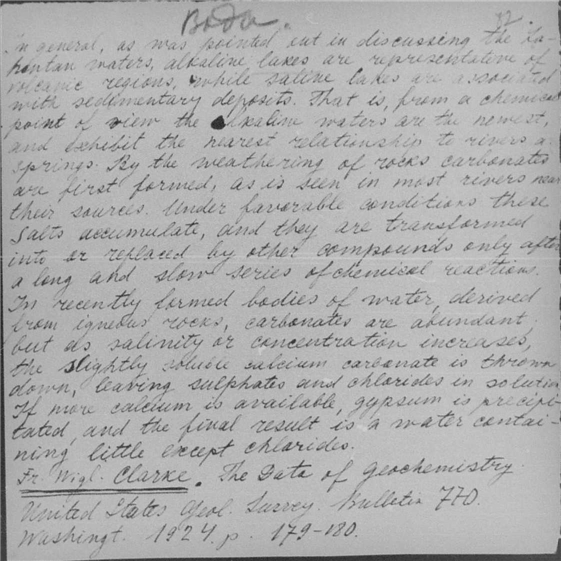 Вода.
12.
In general, as was pointed out in discussing the La-
hontan waters, alkaline lakes are representative of
volcanic regions, while saline lakes are associated
with sedimentary deposits. That is, from a chemical
point of view the alkaline waters are the newest,
and exhibit the nearest relationship to rivers a
springs. By the weathering of rocks carbonates
are first formed, as is seen in most rivers near
their sources. Under favorable conditions these
salts accumulate, and they are transformed
into or replaced by other compounds only after
a long and slow series of chemical reactions.
In recently formed bodies of water, derived
from igneous rocks, carbonates are abundant;
but as salinity or concentration increases,
the slightly soluble calcium carbonate is thrown
down, leaving sulphates and chlorides in solution
If more calcium is available, gypsum is precipi-
tated, and the final result is a water contai-
ning little except chlorides.
Fr. Wigl. Clarke. The Data of Geochemistry.
United States Geol. Survey. Bulletin 770.
Washingt. 1924. p. 179-180.